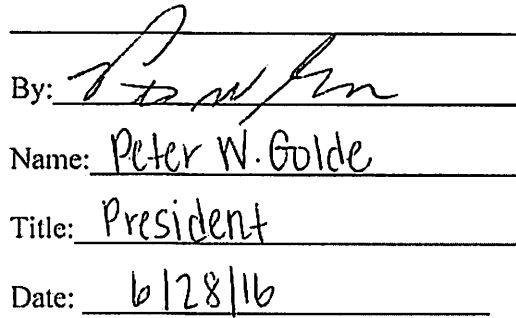 By:
Name: Peter W. Golde
Title: President
Date: 6/28/16